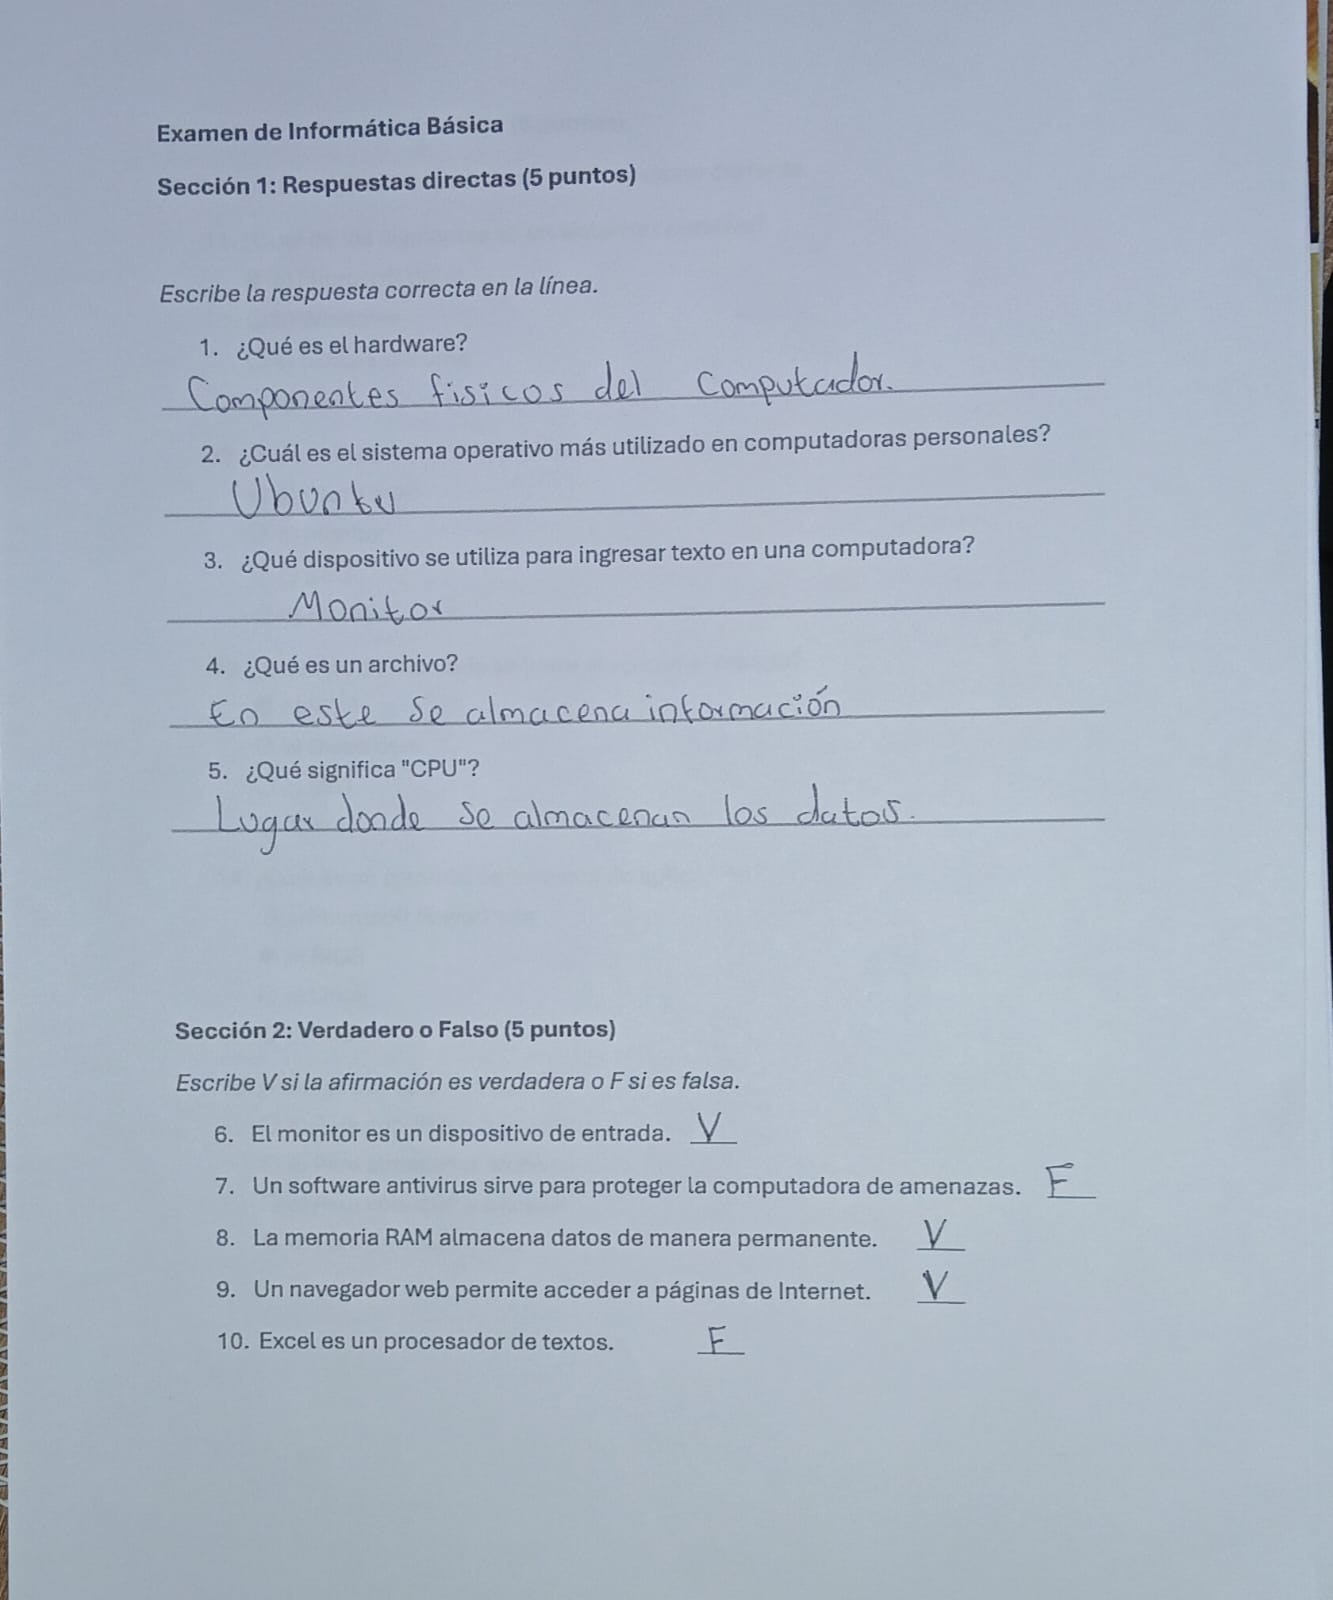 Examen de Informática Básica
Sección 1: Respuestas directas (5 puntos)
Escribe la respuesta correcta en la línea.
1. ¿Qué es el hardware?
Componentes fisicos del Computador.
2. ¿Cuál es el sistema operativo más utilizado en computadoras personales?
Ubuntu
3. ¿Qué dispositivo se utiliza para ingresar texto en una computadora?
Monitor
4. ¿Qué es un archivo?
En este se almacena información
5. ¿Qué significa "CPU"?
Lugar donde se almacenan los datos.
Sección 2: Verdadero o Falso (5 puntos)
Escribe V si la afirmación es verdadera o F si es falsa.
6. El monitor es un dispositivo de entrada. V
7. Un software antivirus sirve para proteger la computadora de amenazas. F
8. La memoria RAM almacena datos de manera permanente. V
9. Un navegador web permite acceder a páginas de Internet. V
10. Excel es un procesador de textos. F